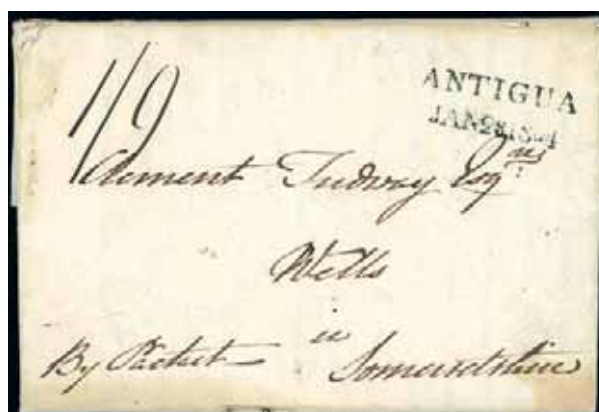 1/9
ANTIGUA
JAN 28 18
Clement Tudway Esqre
Wells
in
By Packet Somersetshire